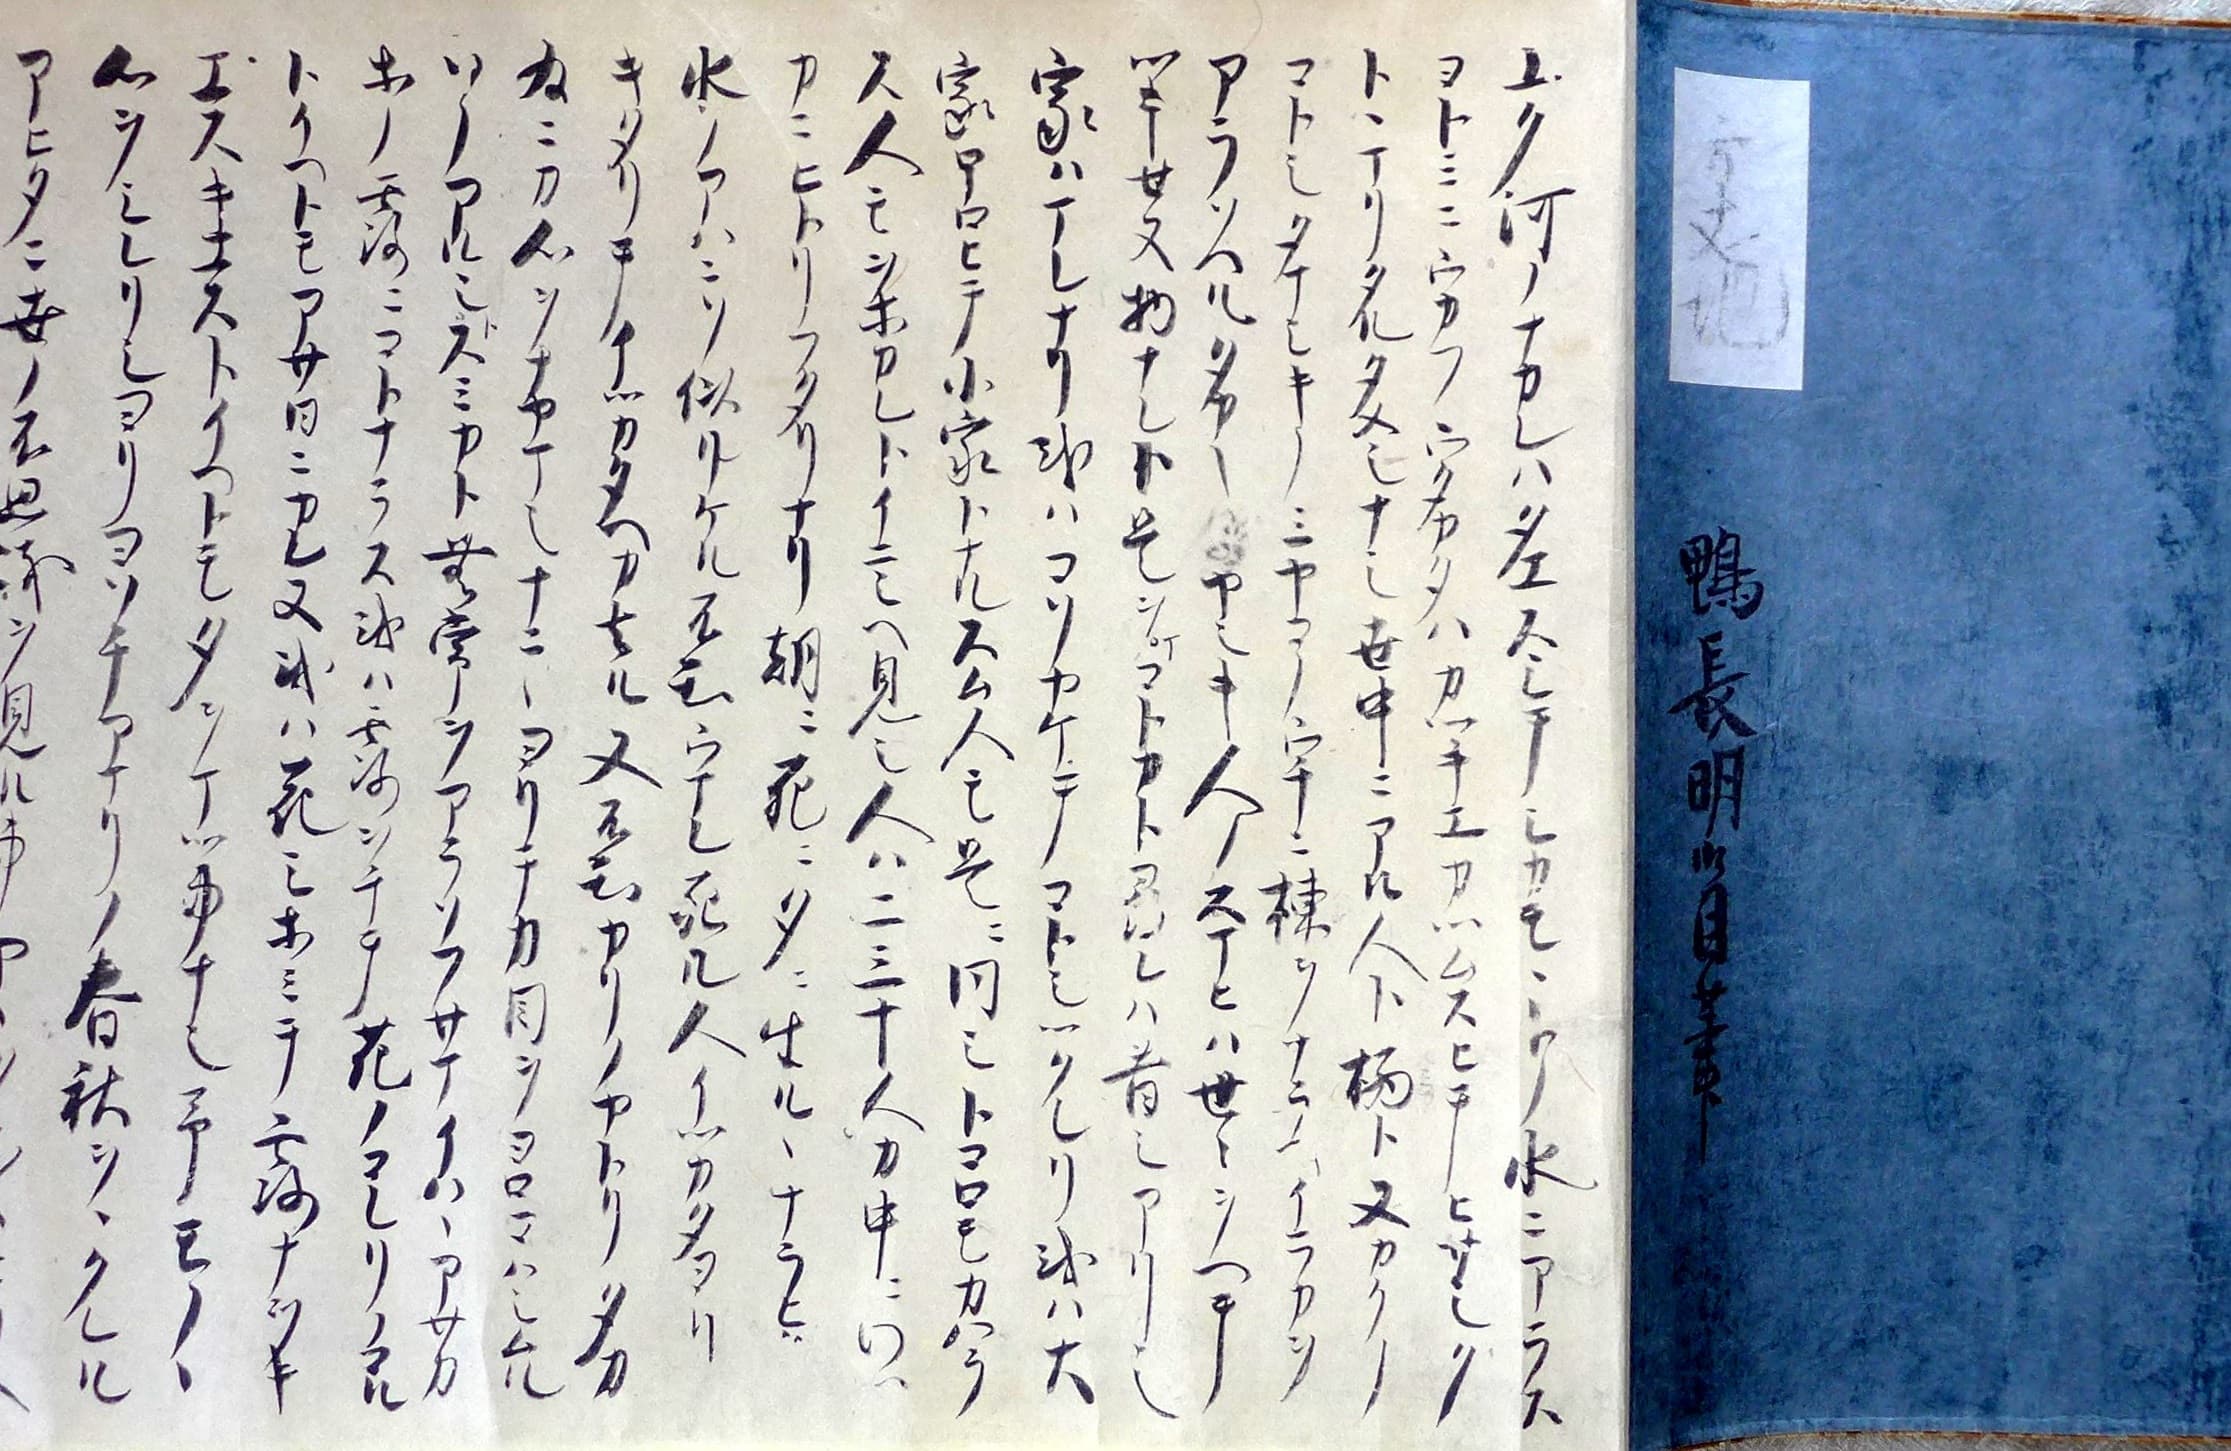 ユク河ノナカレハタエスシテシカモヽトノ水ニアラス
ヨトミニウカフウタカタハカツキエカツムスヒテヒサシク
トヽマリタルタメシナシ世中ニアル人ト栖ト又カクノ
コトシタマシキノミヤコノウチニ棟ヲナラヘイラカヲ
アラソヘルタカキイヤシキ人ノスマヒハ世々ヲヘテ
ツキセヌ物ナレト是ヲマコトカト尋レハ昔シアリシ
家ハマレナリ或ハコソヤケテコトシツクレリ或ハ大
家ホロヒテ小家トナルスム人モ是ニ同シトコロモカハラ
ス人モヲホカレトイニシヘ見シ人ハ二三十人カ中ニワツ
カニヒトリフタリナリ朝ニ死ニ夕ニ生ルヽナラヒ
水ノアハニソ似リケル不知ウマレ死ル人イツカタヨリ
キタリテイツカタヘカ去ル又不知カリノヤトリタカ
為ニカ心ヲナヤマシナニヽヨリテカ目ヲヨロコハシムル
ソノアルシトスミカト無常ヲアラソフサマイハヽアサカ
ホノ露ニコトナラス或ハ露ヲチテ花ノコレリノコル
トイヘトモアサ日ニカレヌ或ハ花シホミテ露ナヲキ
エスキエストイヘトモタヲマツ事ナシ予モノヽ
心ヲシレリシヨリヨソチアマリノ春秋ヲヽクレル
アヒタニ世ノ不思議ヲ見ル事
鴨長明自筆